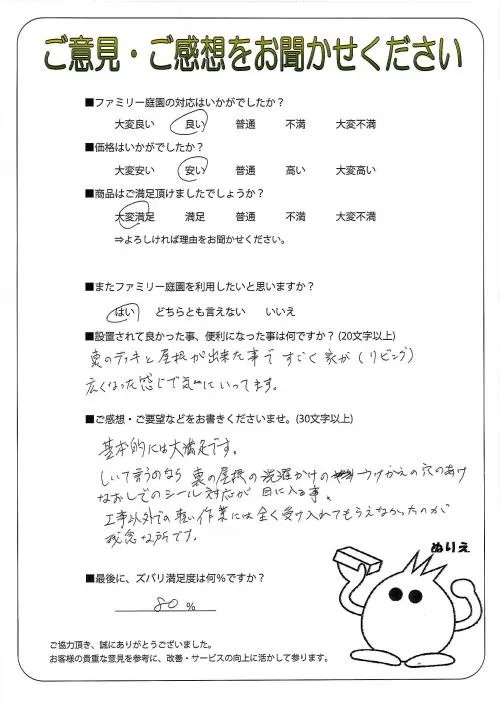 ご意見・ご感想をお聞かせください
■ファミリー庭園の対応はいかがでしたか？
大変良い　良い　普通　不満　大変不満
■価格はいかがでしたか？
大変安い　安い　普通　高い　大変高い
■商品はご満足頂けましたでしょうか？
大変満足　満足　普通　不満　大変不満
⇒よろしければ理由をお聞かせください。
■またファミリー庭園を利用したいと思いますか？
はい　どちらとも言えない　いいえ
■設置されて良かった事、便利になった事は何ですか？(20文字以上)
裏のデッキと屋根が出来た事で すごく 家が (リビング)
広くなった感じで気にいってます。
■ご感想・ご要望などをお書きくださいませ。(30文字以上)
基本的には大満足です。
しいて言うのなら 裏の屋根の洗濯かけの つけかえの穴のあけ
なおしでのシール対応が 目に入る事。
工事以外での軽い作業には全く受け入れてもらえなかったのが
残念な所です。
ぬりえ
■最後に、ズバリ満足度は何％ですか？
80 %
ご協力頂き、誠にありがとうございました。
お客様の貴重な意見を参考に、改善・サービスの向上に活かして参ります。